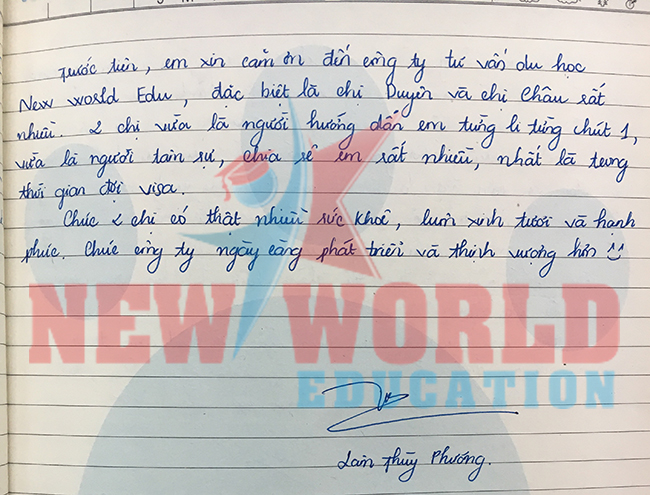 Trước tiên, em xin cảm ơn đến công ty tư vấn du học
New World Edu, đặc biệt là chị Duyên và chị Châu rất
nhiều. 2 chị vừa là người hướng dẫn em từng li từng chút 1,
vừa là người tâm sự, chia sẻ em rất nhiều, nhất là trong
thời gian đợi visa.
Chúc 2 chị có thật nhiều sức khoẻ, luôn xinh tươi và hạnh
phúc. Chúc công ty ngày càng phát triển và thịnh vượng hơn
NEW WORLD
EDUCATION
Lan Thùy Phương.